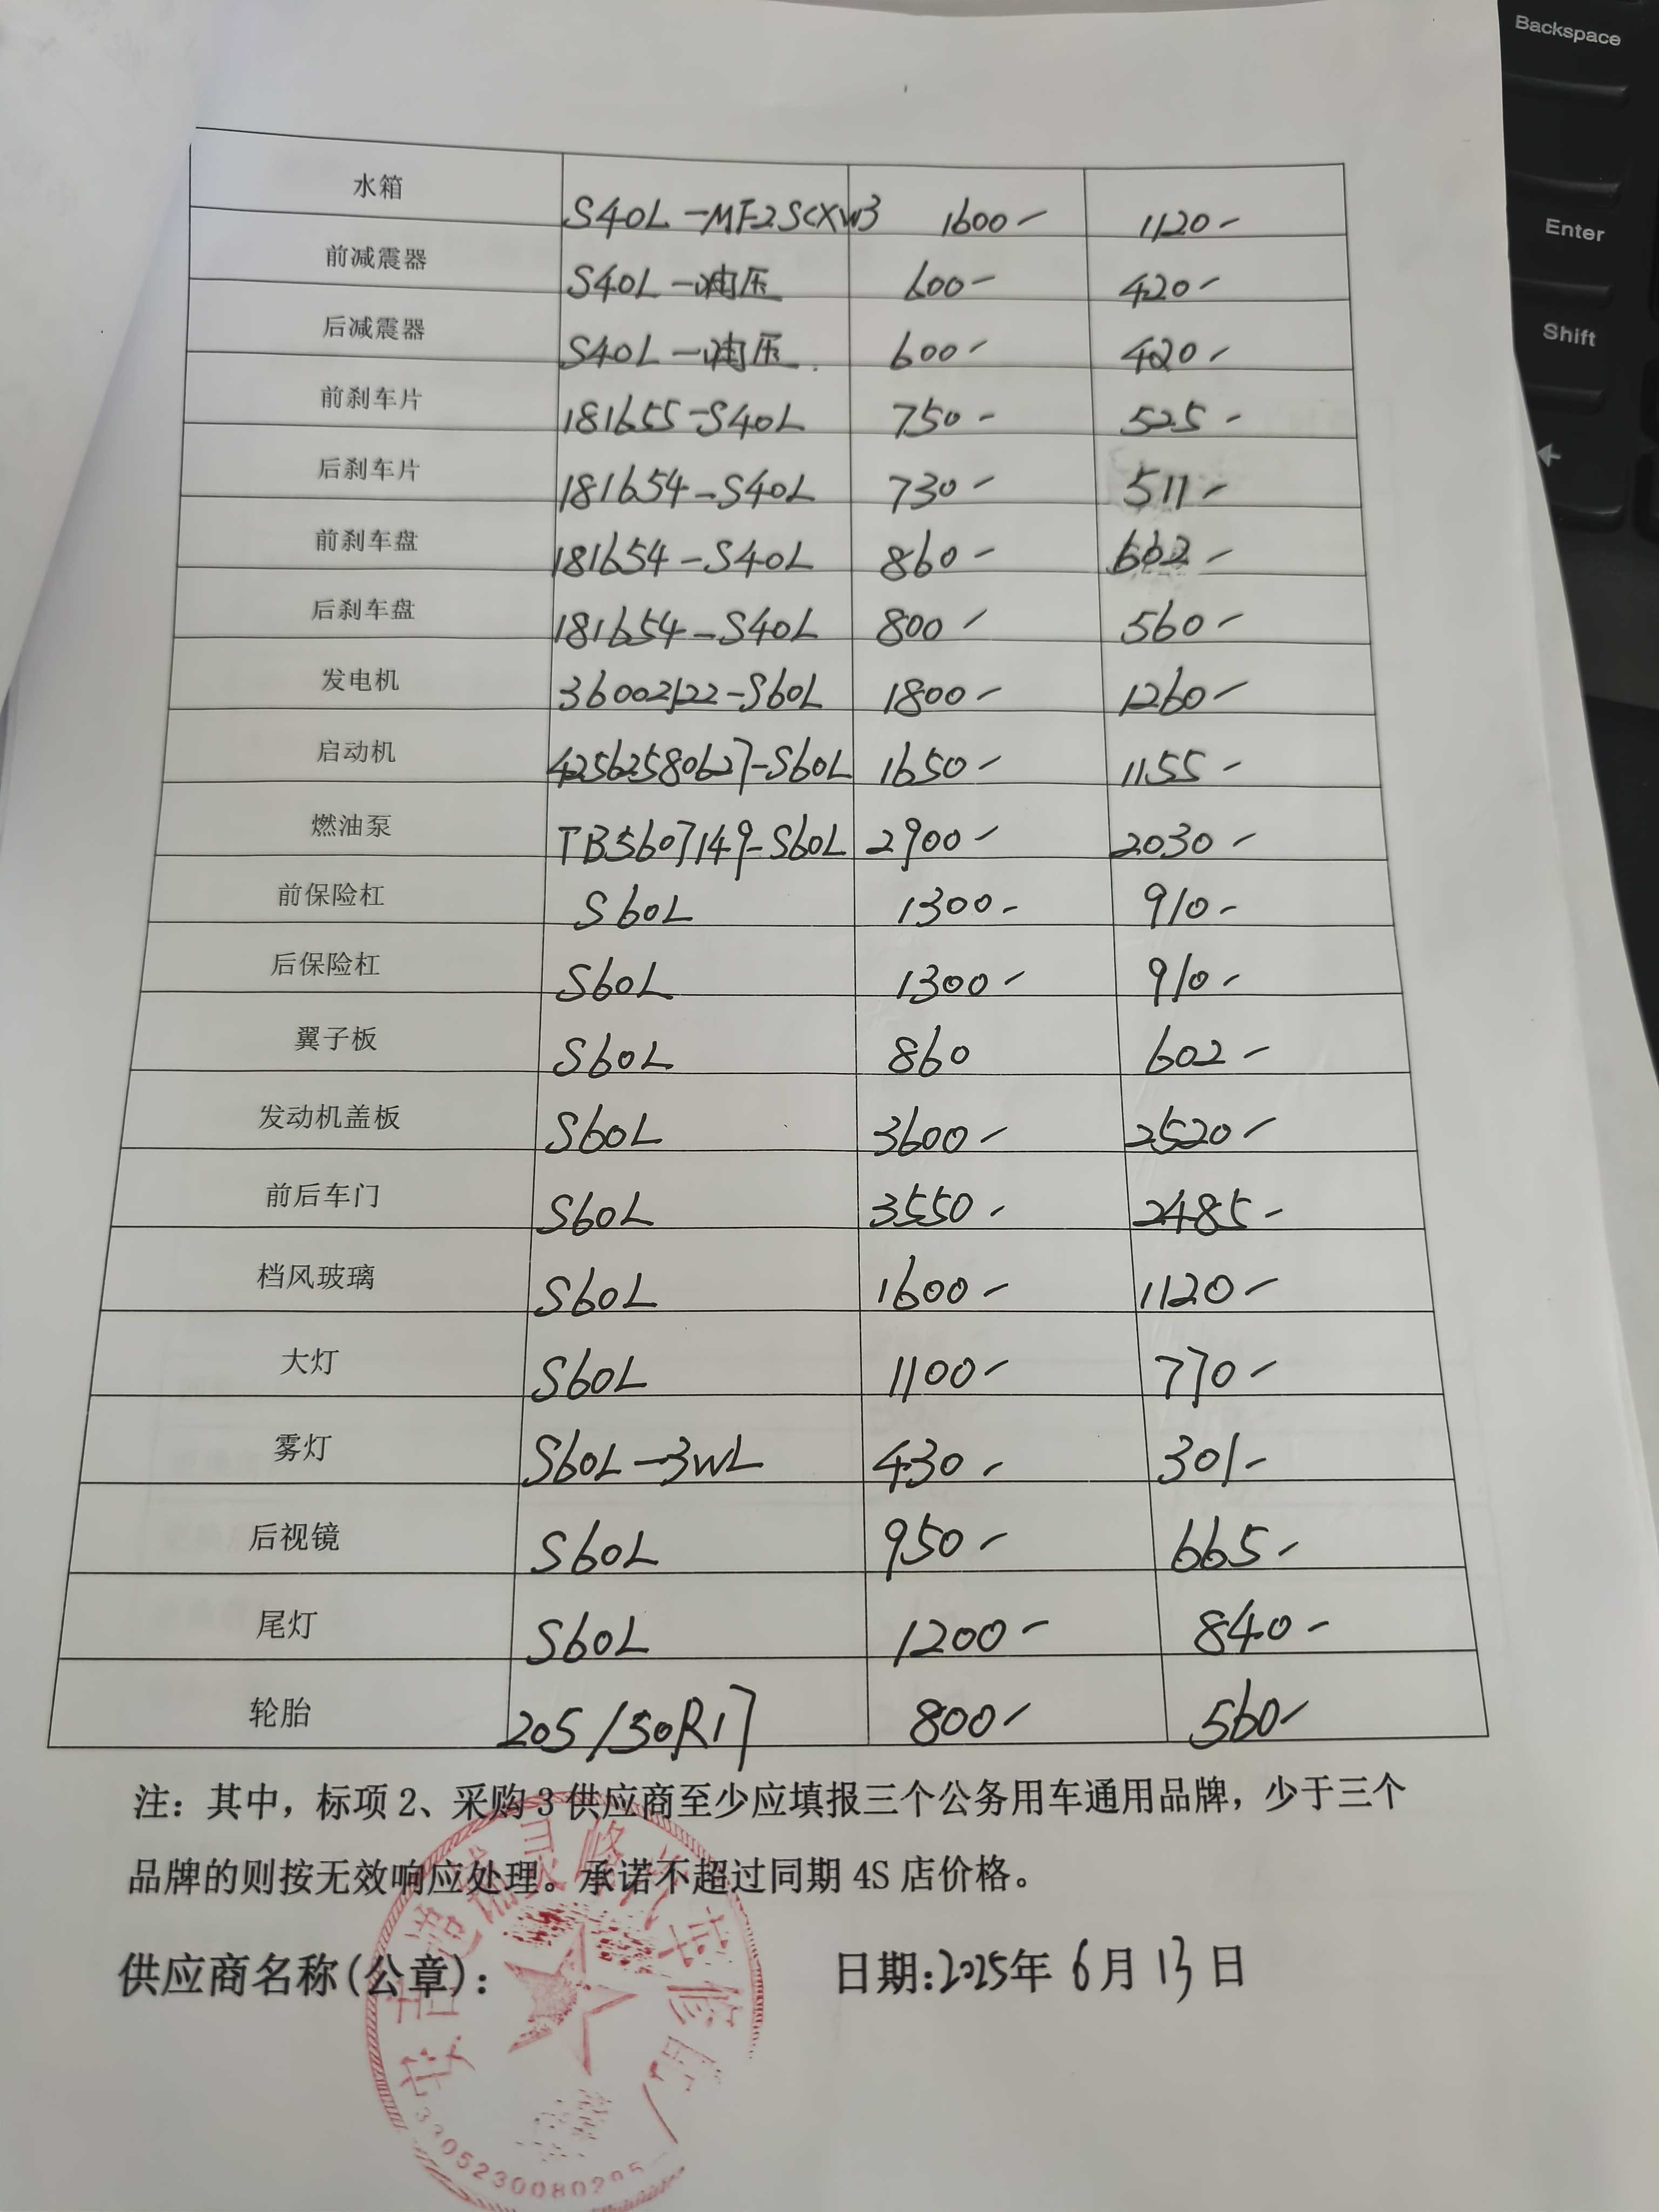 Backspace
Enter
Shift
水箱 S40L-MF2SCXW3 1600- 1120-
前减震器 S40L-油压 600- 420-
后减震器 S40L-油压. 600- 420-
前刹车片 181655-S40L 750- 525-
后刹车片 181654-S40L 730- 511-
前刹车盘 181654-S40L 860- 602-
后刹车盘 181654-S40L 800- 560-
发电机 36002122-S60L 1800- 1260-
启动机 42562580627-S60L 1650- 1155-
燃油泵 TB5607149-S60L 2900- 2030-
前保险杠 S60L 1300- 910-
后保险杠 S60L 1300- 910-
翼子板 S60L 860 602-
发动机盖板 S60L 3600- 2520-
前后车门 S60L 3550- 2485-
档风玻璃 S60L 1600- 1120-
大灯 S60L 1100- 770-
雾灯 S60L-3WL 430- 301-
后视镜 S60L 950- 665-
尾灯 S60L 1200- 840-
轮胎 205/50R17 800- 560-
注：其中，标项2、采购3供应商至少应填报三个公务用车通用品牌，少于三个
品牌的则按无效响应处理。承诺不超过同期4S店价格。
供应商名称(公章)：
日期:2025年6月13日
安吉递铺灵峰汽车修